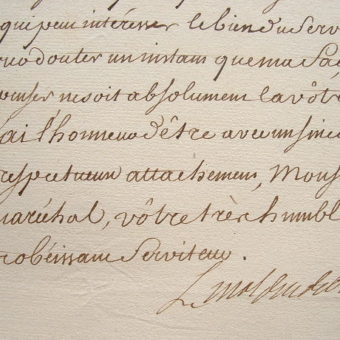 qui peut intéresser le bien du Serv
douter un instant que ma faç
penser ne soit absolument la vôtre
J'ai l'honneur d'être avec un sinc
respectueux attachement, Mons
maréchal, vôtre très humbl
obéissant Serviteur.